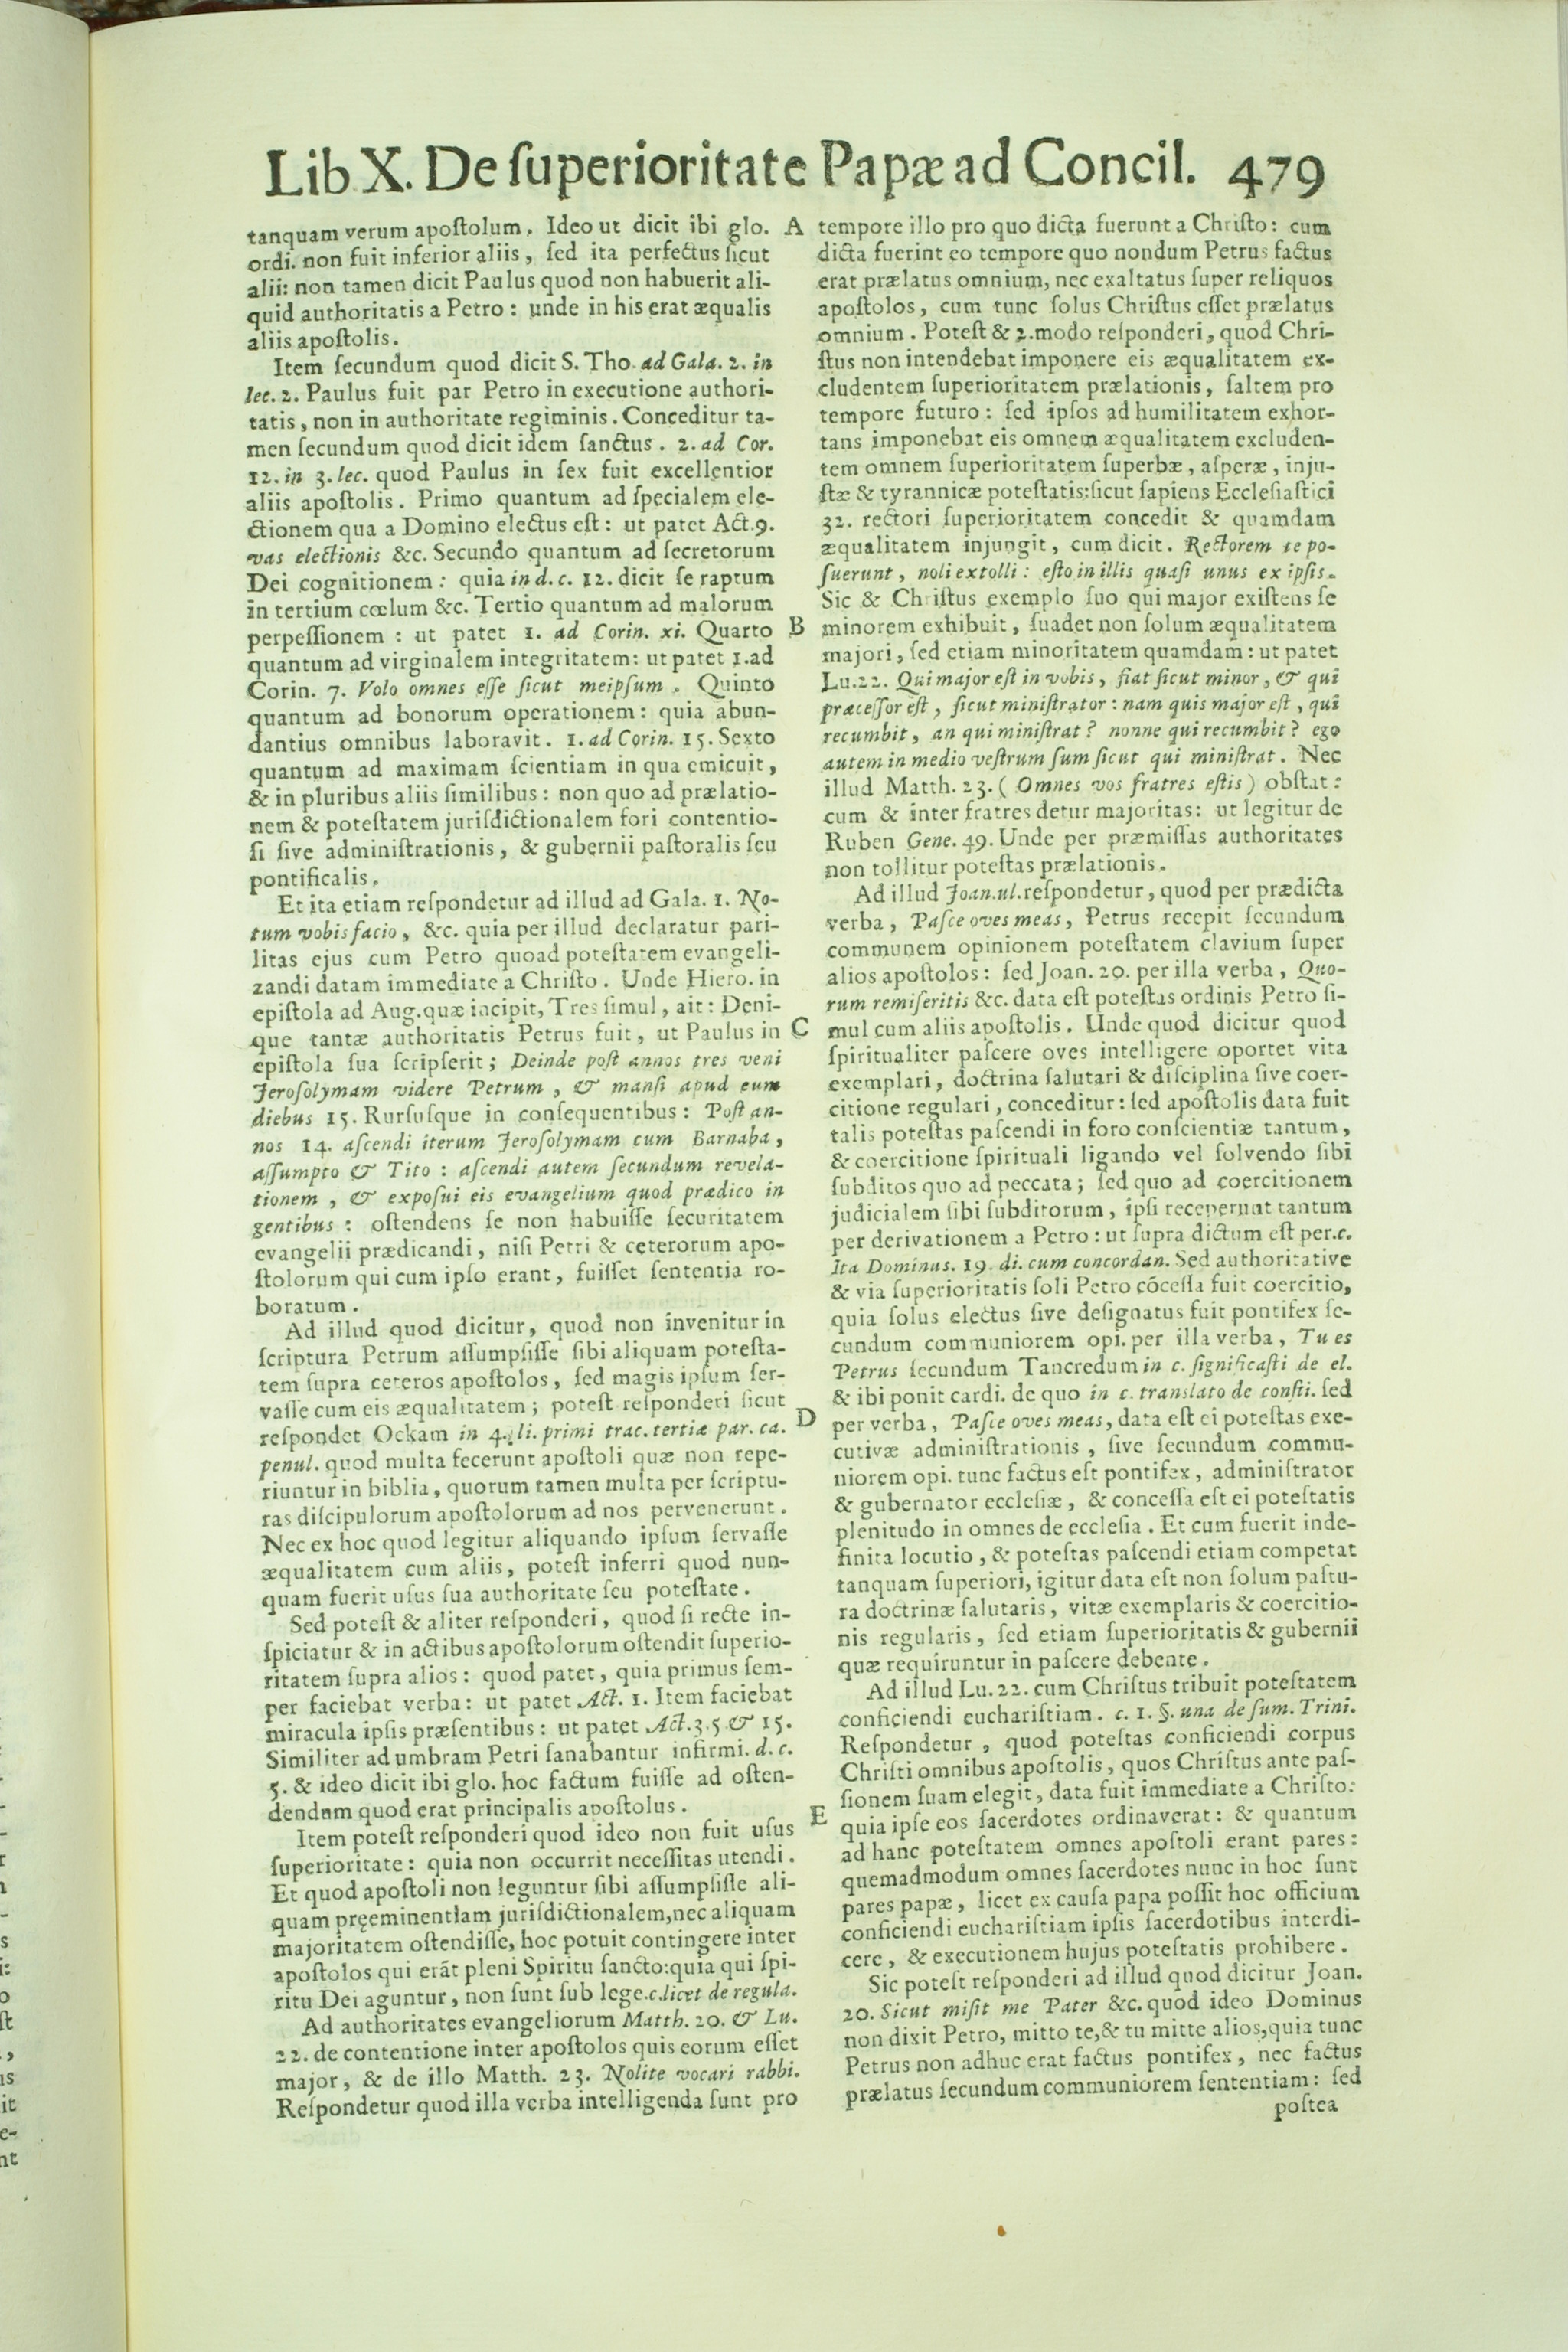 Lib X. De ſuperioritate Papæ ad Concil. 479
tanquam verum apoſtolum. Ideo ut dicit ibi glo.
ordi. non fuit inferior aliis, ſed ita perfectus ſicut
alii: non tamen dicit Paulus quod non habuerit ali-
quid authoritatis a Petro: unde in his erat æqualis
aliis apoſtolis.
Item ſecundum quod dicit S. Tho. ad Gala. 2. in
lec. 2. Paulus fuit par Petro in executione authori-
tatis, non in authoritate regiminis. Conceditur ta-
men ſecundum quod dicit idem ſanctus. 2. ad Cor.
12. in 3. lec. quod Paulus in ſex fuit excellentior
aliis apoſtolis. Primo quantum ad ſpecialem ele-
ctionem qua a Domino electus eſt: ut patet Act.9.
vas electionis &c. Secundo quantum ad ſecretorum
Dei cognitionem: quia in d. c. 12. dicit ſe raptum
in tertium cœlum &c. Tertio quantum ad malorum
perpeſſionem: ut patet 1. ad Corin. xi. Quarto
quantum ad virginalem integritatem: ut patet 1.ad
Corin. 7. Volo omnes eſſe ſicut meipſum. Quinto
quantum ad bonorum operationem: quia abun-
dantius omnibus laboravit. 1. ad Corin. 15. Sexto
quantum ad maximam ſcientiam in qua emicuit,
& in pluribus aliis ſimilibus: non quo ad prælatio-
nem & poteſtatem juriſdictionalem fori contentio-
ſi ſive adminiſtrationis, & gubernii paſtoralis ſeu
pontificalis.
Et ita etiam reſpondetur ad illud ad Gala. 1. No-
tum vobis facio, &c. quia per illud declaratur pari-
litas ejus cum Petro quoad poteſtatem evangeli-
zandi datam immediate a Chriſto. Unde Hiero. in
epiſtola ad Aug.quæ incipit, Tres ſimul, ait: Deni-
que tantæ authoritatis Petrus fuit, ut Paulus in
epiſtola ſua ſcripſerit; Deinde poſt annos tres veni
Jeroſolymam videre Petrum, & manſi apud eum
diebus 15. Rurſuſque in conſequentibus: Poſt an-
nos 14. aſcendi iterum Jeroſolymam cum Barnaba,
aſſumpto & Tito: aſcendi autem ſecundum revela-
tionem, & expoſui eis evangelium quod prædico in
gentibus: oſtendens ſe non habuiſſe ſecuritatem
evangelii prædicandi, niſi Petri & ceterorum apo-
ſtolorum qui cum ipſo erant, fuiſſet ſententia ro-
boratum.
Ad illud quod dicitur, quod non invenitur in
ſcriptura Petrum aſſumpſiſſe ſibi aliquam poteſta-
tem ſupra ceteros apoſtolos, ſed magis ipſum ſer-
vaſſe cum eis æqualitatem; poteſt reſponderi ſicut
reſpondet Ockam in 4. li. primi trac. tertiæ par. ca.
penul. quod multa fecerunt apoſtoli quæ non repe-
riuntur in biblia, quorum tamen multa per ſcriptu-
ras diſcipulorum apoſtolorum ad nos pervenerunt.
Nec ex hoc quod legitur aliquando ipſum ſervaſſe
æqualitatem cum aliis, poteſt inferri quod nun-
quam fuerit uſus ſua authoritate ſeu poteſtate.
Sed poteſt & aliter reſponderi, quod ſi recte in-
ſpiciatur & in actibus apoſtolorum oſtendit ſuperio-
ritatem ſupra alios: quod patet, quia primus ſem-
per faciebat verba: ut patet Act. 1. Item faciebat
miracula ipſis præſentibus: ut patet Act.3.5 & 15.
Similiter ad umbram Petri ſanabantur infirmi. d. c.
5. & ideo dicit ibi glo. hoc factum fuiſſe ad oſten-
dendum quod erat principalis apoſtolus.
Item poteſt reſponderi quod ideo non fuit uſus
ſuperioritate: quia non occurrit neceſſitas utendi.
Et quod apoſtoli non leguntur ſibi aſſumpſiſſe ali-
quam pręeminentiam juriſdictionalem,nec aliquam
majoritatem oſtendiſſe, hoc potuit contingere inter
apoſtolos qui erãt pleni Spiritu ſancto:quia qui ſpi-
ritu Dei aguntur, non ſunt ſub lege.c.licet de regula.
Ad authoritates evangeliorum Matth. 20. & Lu.
22. de contentione inter apoſtolos quis eorum eſſet
major, & de illo Matth. 23. Nolite vocari rabbi.
Reſpondetur quod illa verba intelligenda ſunt pro
A
B
C
D
E
tempore illo pro quo dicta fuerunt a Chriſto: cum
dicta fuerint eo tempore quo nondum Petrus factus
erat prælatus omnium, nec exaltatus ſuper reliquos
apoſtolos, cum tunc ſolus Chriſtus eſſet prælatus
omnium. Poteſt & 2.modo reſponderi, quod Chri-
ſtus non intendebat imponere eis æqualitatem ex-
cludentem ſuperioritatem prælationis, ſaltem pro
tempore futuro: ſed ipſos ad humilitatem exhor-
tans imponebat eis omnem æqualitatem excluden-
tem omnem ſuperioritatem ſuperbæ, aſperæ, inju-
ſtæ & tyrannicæ poteſtatis:ſicut ſapiens Eccleſiaſtici
32. rectori ſuperioritatem concedit & quamdam
æqualitatem injungit, cum dicit. Rectorem te po-
ſuerunt, noli extolli: eſto in illis quaſi unus ex ipſis.
Sic & Chriſtus exemplo ſuo qui major exiſtens ſe
minorem exhibuit, ſuadet non ſolum æqualitatem
majori, ſed etiam minoritatem quamdam: ut patet
Lu.22. Qui major eſt in vobis, fiat ſicut minor, & qui
præceſſor eſt, ſicut miniſtrator: nam quis major eſt, qui
recumbit, an qui miniſtrat? nonne qui recumbit? ego
autem in medio veſtrum ſum ſicut qui miniſtrat. Nec
illud Matth. 23. (Omnes vos fratres eſtis) obſtat:
cum & inter fratres detur majoritas: ut legitur de
Ruben Gene. 49. Unde per præmiſſas authoritates
non tollitur poteſtas prælationis.
Ad illud Joan.ul.reſpondetur, quod per prædicta
verba, Paſce oves meas, Petrus recepit ſecundum
communem opinionem poteſtatem clavium ſuper
alios apoſtolos: ſed Joan. 20. per illa verba, Quo-
rum remiſeritis &c. data eſt poteſtas ordinis Petro ſi-
mul cum aliis apoſtolis. Unde quod dicitur quod
ſpiritualiter paſcere oves intelligere oportet vita
exemplari, doctrina ſalutari & diſciplina ſive coer-
citione regulari, conceditur: ſed apoſtolis data fuit
talis poteſtas paſcendi in foro conſcientiæ tantum,
& coercitione ſpirituali ligando vel ſolvendo ſibi
ſubditos quo ad peccata; ſed quo ad coercitionem
judicialem ſibi ſubditorum, ipſi receperunt tantum
per derivationem a Petro: ut ſupra dictum eſt per.c.
Ita Dominus. 19. di. cum concordan. Sed authoritative
& via ſuperioritatis ſoli Petro cõceſſa fuit coercitio,
quia ſolus electus ſive deſignatus fuit pontifex ſe-
cundum communiorem opi. per illa verba, Tu es
Petrus ſecundum Tancredum in c. ſignificaſti de el.
& ibi ponit cardi. de quo in c. translato de conſti. ſed
per verba, Paſce oves meas, data eſt ei poteſtas exe-
cutivæ adminiſtrationis, ſive ſecundum commu-
niorem opi. tunc factus eſt pontifex, adminiſtrator
& gubernator eccleſiæ, & conceſſa eſt ei poteſtatis
plenitudo in omnes de eccleſia. Et cum fuerit inde-
finita locutio, & poteſtas paſcendi etiam competat
tanquam ſuperiori, igitur data eſt non ſolum paſtu-
ra doctrinæ ſalutaris, vitæ exemplaris & coercitio-
nis regularis, ſed etiam ſuperioritatis & gubernii
quæ requiruntur in paſcere debente.
Ad illud Lu. 22. cum Chriſtus tribuit poteſtatem
conficiendi euchariſtiam. c. 1. §. una de ſum. Trini.
Reſpondetur, quod poteſtas conficiendi corpus
Chriſti omnibus apoſtolis, quos Chriſtus ante paſ-
ſionem ſuam elegit, data fuit immediate a Chriſto:
quia ipſe eos ſacerdotes ordinaverat: & quantum
ad hanc poteſtatem omnes apoſtoli erant pares:
quemadmodum omnes ſacerdotes nunc in hoc ſunt
pares papæ, licet ex cauſa papa poſſit hoc officium
conficiendi euchariſtiam ipſis ſacerdotibus interdi-
cere, & executionem hujus poteſtatis prohibere.
Sic poteſt reſponderi ad illud quod dicitur Joan.
20. Sicut miſit me Pater &c. quod ideo Dominus
non dixit Petro, mitto te,& tu mitte alios,quia tunc
Petrus non adhuc erat factus pontifex, nec factus
prælatus ſecundum communiorem ſententiam: ſed
poſtea